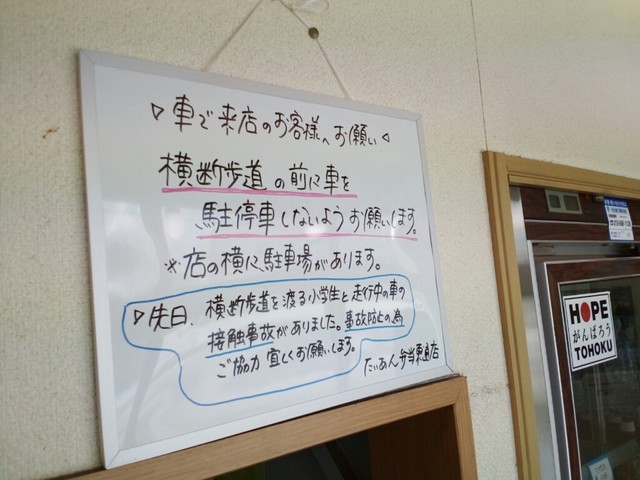 ▷車で来店のお客様へお願い◁
横断歩道の前に車を
駐停車しないようお願いします。
※店の横に駐車場があります。
▷先日、横断歩道を渡る小学生と走行中の車の
接触事故がありました。事故防止の為
ご協力宜しくお願いします。
たいあん弁当
HOPE
がんばろう
TOHOKU